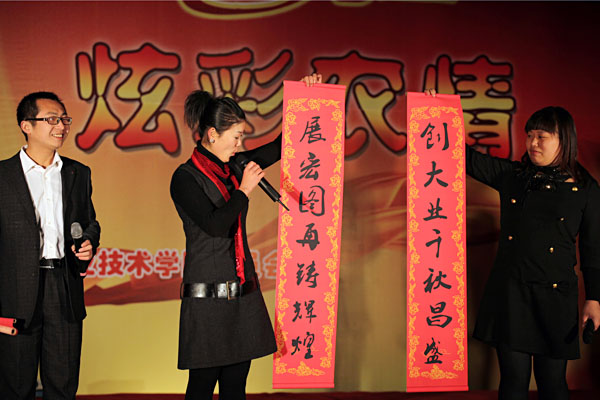 炫彩农情
业技术学
创大业千秋昌盛
展宏图再铸辉煌